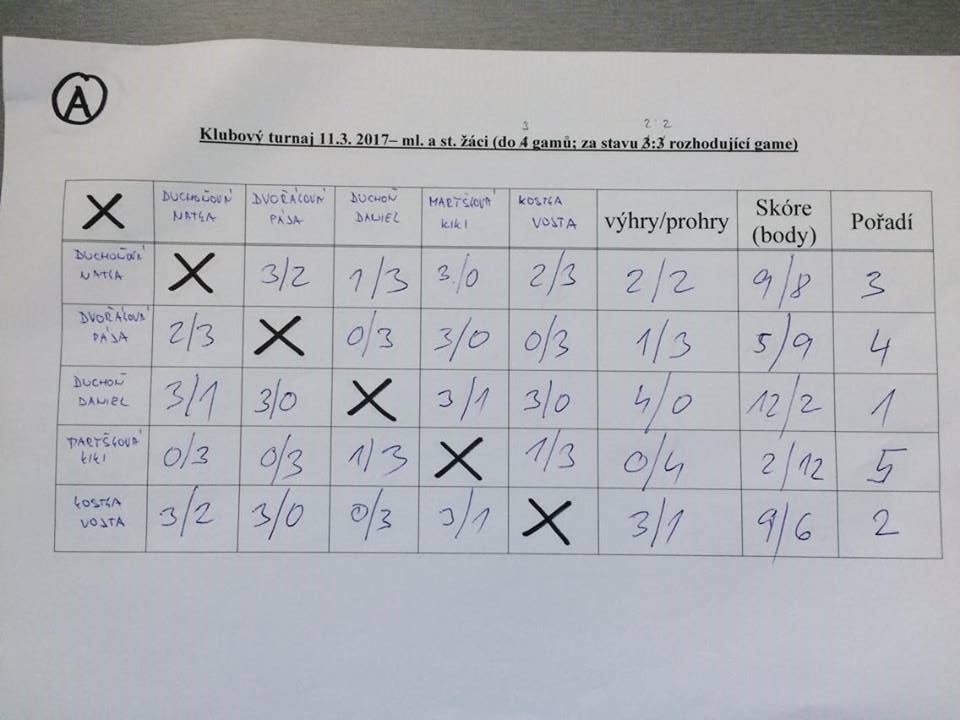 A
3 2:2
Klubový turnaj 11.3. 2017– ml. a st. žáci (do 4 gamů; za stavu 3:3 rozhodující game)
X DUCHOŇOVÁ NATKA DVOŘÁKOVÁ PÁJA DUCHOŇ DANIEL MARTŠKOVÁ KIKI KOSTKA VOJTA výhry/prohry Skóre (body) Pořadí
DUCHOŇOVÁ NATKA X 3/2 1/3 3/0 2/3 2/2 9/8 3
DVOŘÁKOVÁ PÁJA 2/3 X 0/3 3/0 0/3 1/3 5/9 4
DUCHOŇ DANIEL 3/1 3/0 X 3/1 3/0 4/0 12/2 1
MARTŠKOVÁ KIKI 0/3 0/3 1/3 X 1/3 0/4 2/12 5
KOSTKA VOJTA 3/2 3/0 0/3 3/1 X 3/1 9/6 2